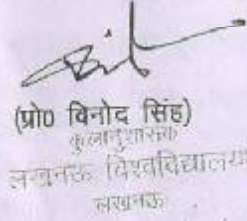 (प्रो० विनोद सिंह)
कुलानुशासक
लखनऊ विश्वविद्यालय
लखनऊ